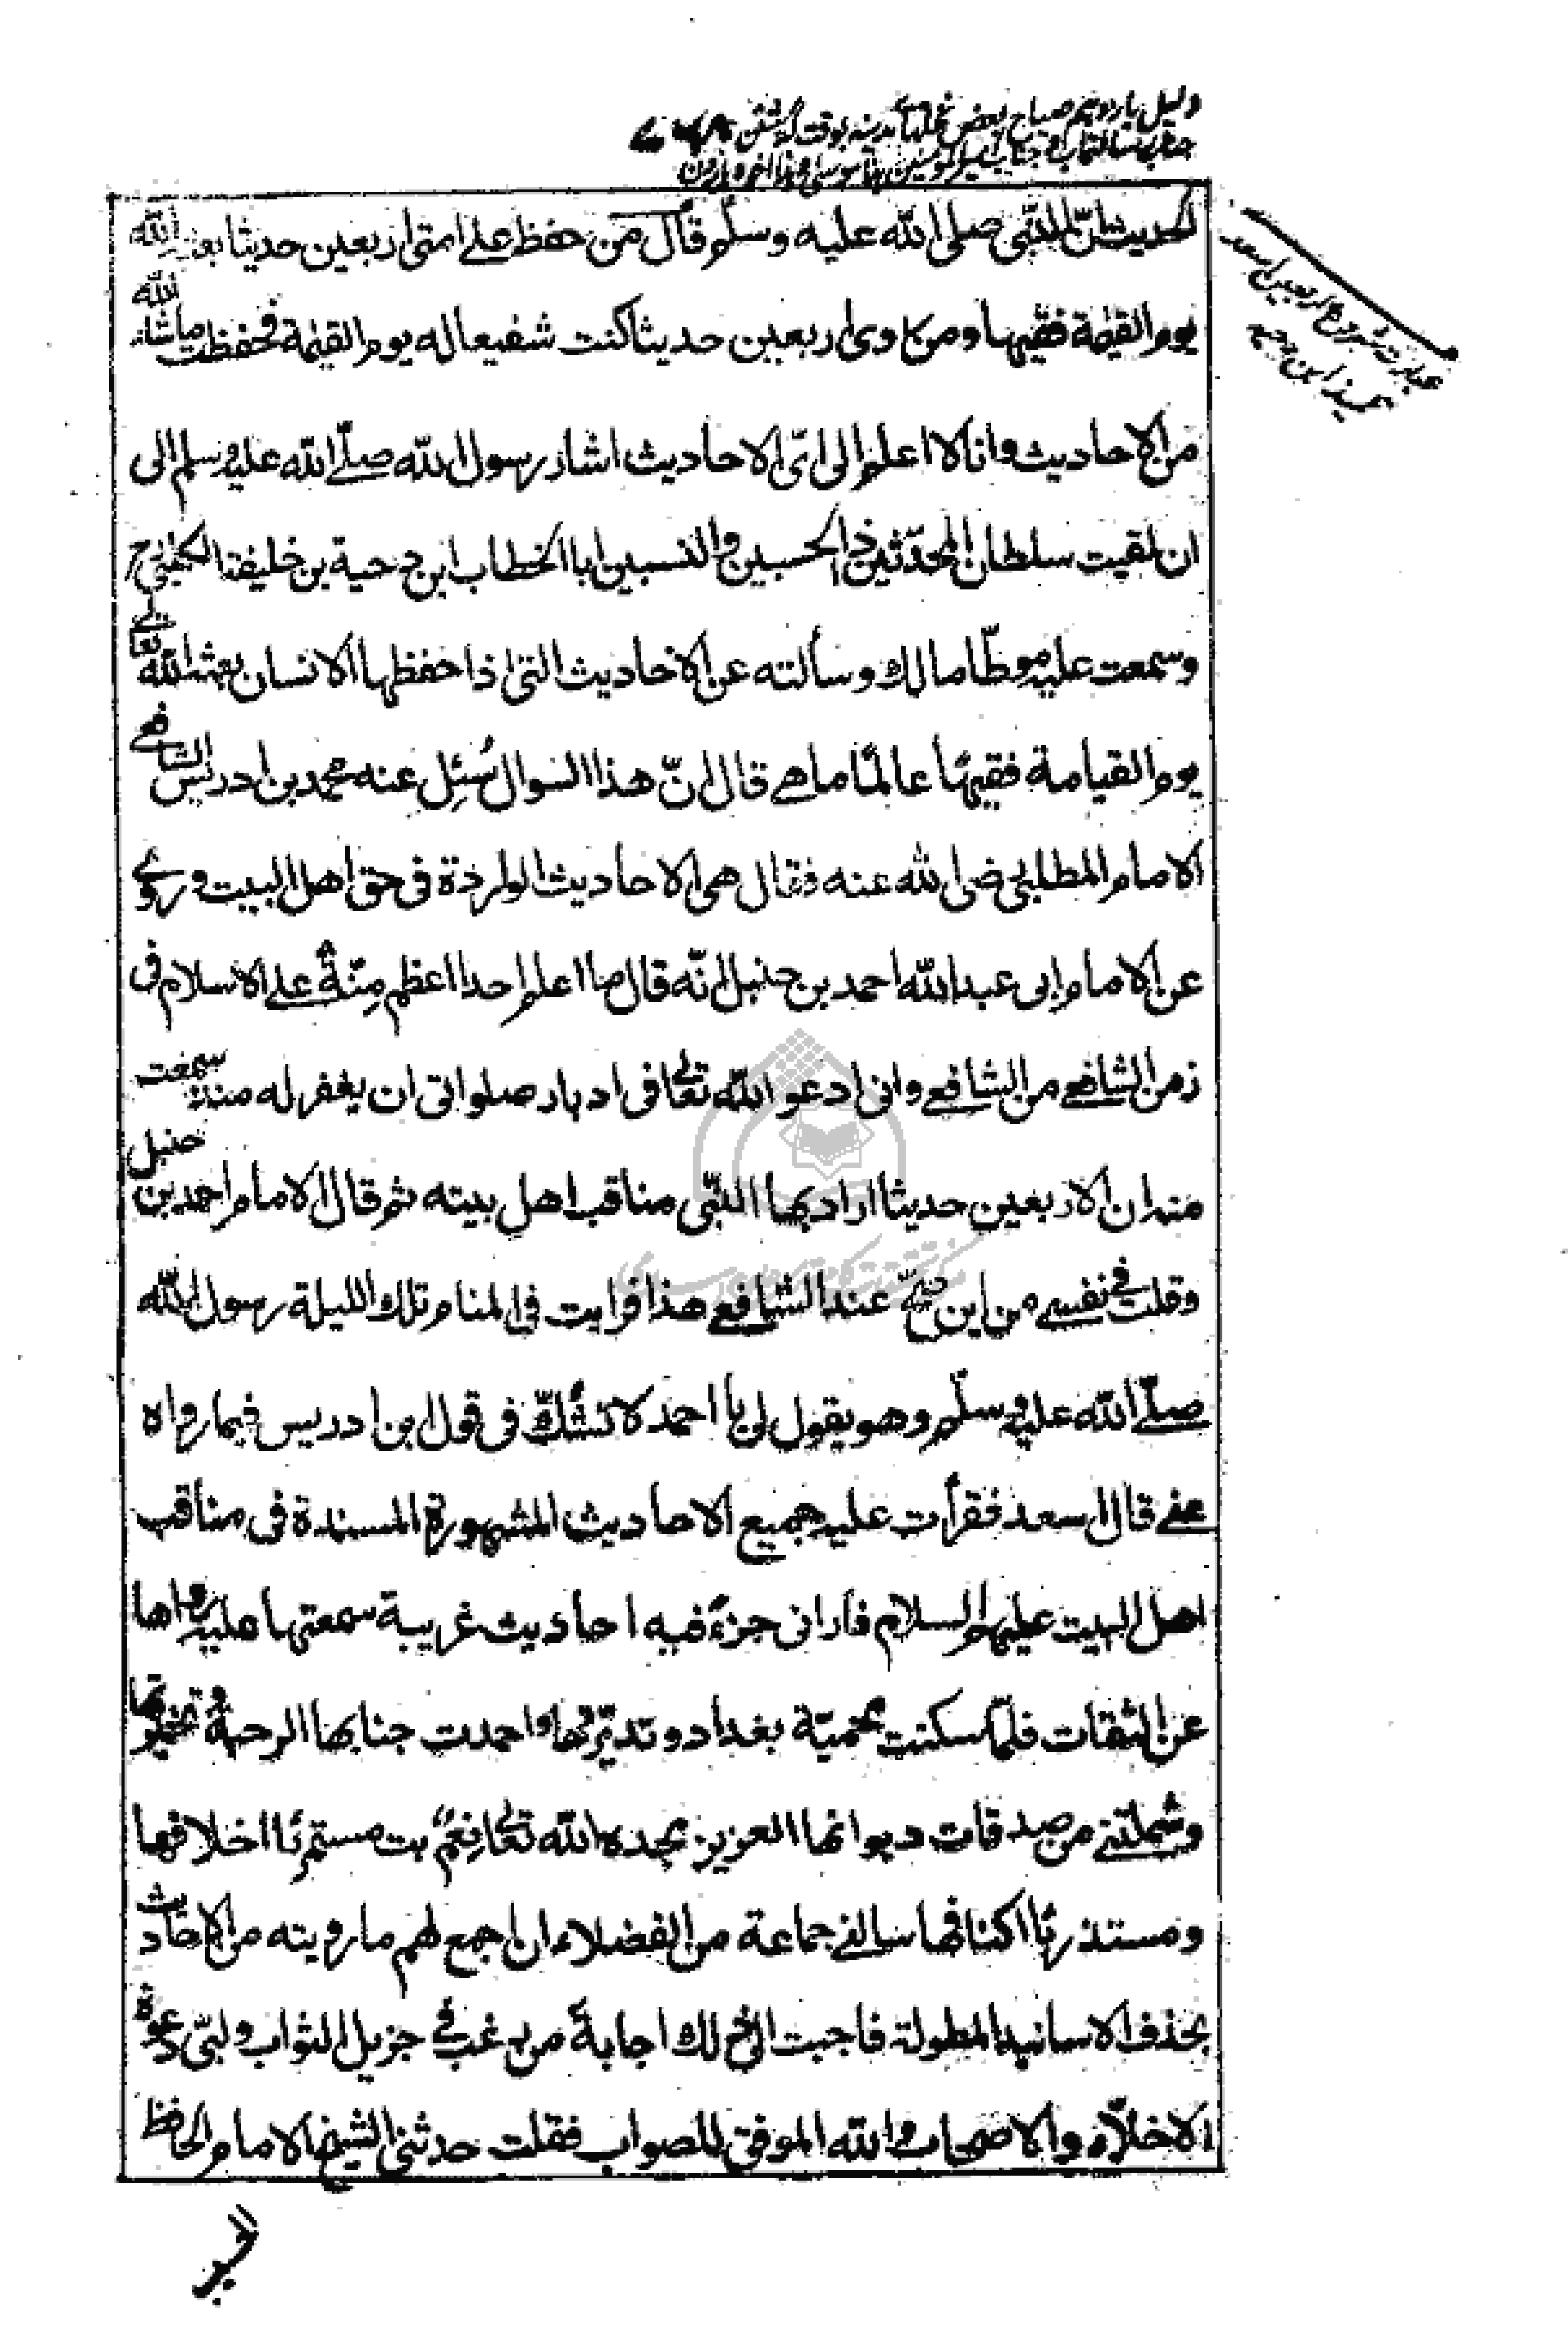 دلیل یازدهم صباح بعض محلهای مدینه بوقت گذشتن
جناب رسالتماب و جناب امیرالمومنین هذا موسی و هذا اخوه هارون
عبارت شروع اربعین اسعد
تلمیذ ابن دحیه
الحدیث ان النبی صلی الله علیه وسلم قال من حفظ علی امتی اربعین حدیثا بعثه الله
یوم القیمة فقیها ومن روی اربعین حدیثا کنت شفیعا له یوم القیمة فحفظت ما شاء الله
من الاحادیث وانا لا اعلم الی ای الاحادیث اشار رسول الله صلی الله علیه وسلم الی
ان لقیت سلطان المحدثین ذا الحسبین والنسبین ابا الخطاب ابن دحیة بن خلیفة الکلبی رح
وسمعت علیه موطا مالک وسألته عن الاحادیث التی اذا حفظها الانسان بعثه الله تعالی
یوم القیامة فقیهًا عالمًا ما هی قال انّ هذا السوال سُئِل عنه محمد بن ادریس الشافعی
الامام المطلبی رضی الله عنه فقال هی الاحادیث الواردة فی حق اهل البیت وروی
عن الامام ابی عبد الله احمد بن حنبل انّه قال ما اعلم احدا اعظم مِنّةً علی الاسلام فی
زمن الشافعی من الشافعی وانی ادعو الله تعالی فی ادبار صلواتی ان یغفر له منذ سمعت
منه ان الاربعین حدیثا اراد بها النّبی مناقب اهل بیته ثم قال الامام احمد بن حنبل
وقلت فی نفسی من این صحّ عند الشافعی هذا فرایت فی المنام تلک اللیلة رسول الله
صلّی الله علیه وسلّم وهو یقول لی یا احمد لا تشکّ فی قول ابن ادریس فیما رواه
عنی قال اسعد فقرأت علیه جمیع الاحادیث المشهورة المسندة فی مناقب
اهل البیت علیهم السلام فارانی جزءً فیه احادیث غریبة سمعتها علیه رواها
عن الثقات فلمّا سکنت بمحمیّة بغداد وتدیّرتها واحمدت جنابها الرحب
وشملتنی من صدقات دیوانها العزیز مجده الله تعالی نِعَمٌ بت مستمریًا اخلافها
ومستذریًا اکنافها سالنی جماعة من الفضلاء ان اجمع لهم ما رویته من الاحادیث
بحذف الاسانید المطولة فاجبت الی ذلک اجابة من رغب فی جزیل الثواب ولبّی دعوة
الاخلّاء والاصحاب والله الموفق للصواب فقلت حدثنی الشیخ الامام الحافظ